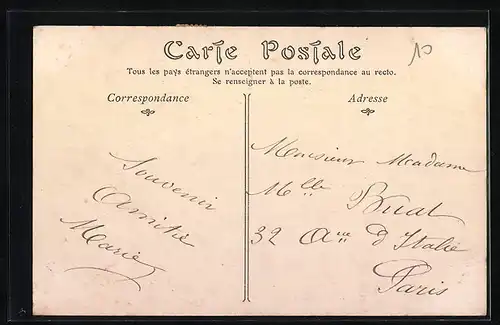 Carte Postale
10
Tous les pays étrangers n'acceptent pas la correspondance au recto.
Se renseigner à la poste.
Correspondance
Adresse
Souvenir
Amitié
Marie
Monsieur Madame
Mlle Buat
32 Aue d'Italie
Paris